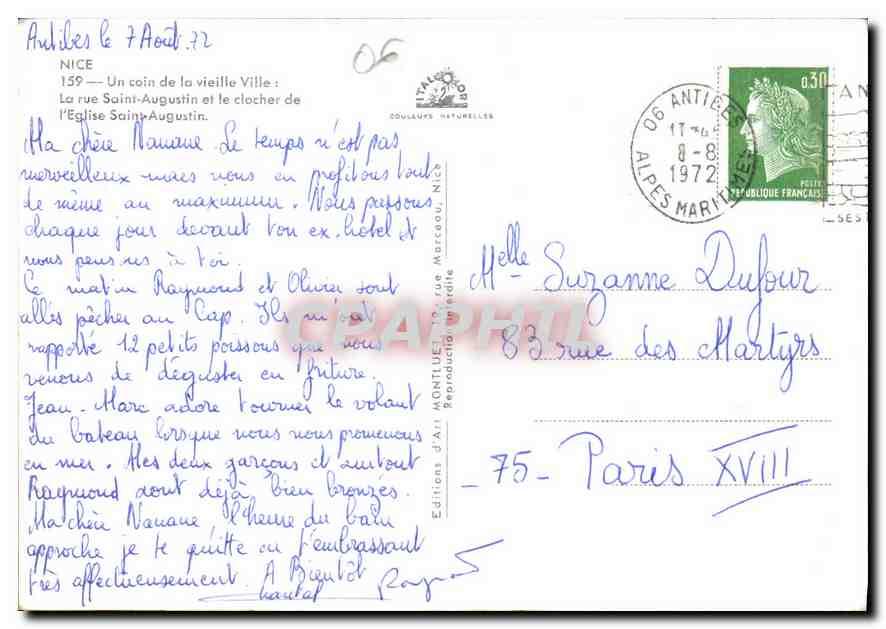 Antibes le 7 Août 72
06
NICE
159 — Un coin de la vieille Ville :
La rue Saint-Augustin et le clocher de
l'Eglise Saint-Augustin.
ITALCOLOR
COULEURS NATURELLES
Ma chère Nanane. Le temps n'est pas
merveilleux mais nous en profitons tout
de même au maximum. Nous passons
chaque jour devant ton ex-hôtel et
nous pensons à toi.
Ce matin Raymond et Olivier sont
allés pêcher au Cap. Ils m'ont
rapporté 12 petits poissons que nous
venons de déguster en friture.
Jean-Marc adore tourner le volant
du bateau lorsque nous nous promenons
en mer. Mes deux garçons et surtout
Raymond sont déjà bien bronzés.
Ma chère Nanane, l'heure du bain
approche je te quitte en t'embrassant
très affectueusement. A Bientôt
Chantal
Editions d'Art MONTLUET, rue Marceau, Nice
Reproduction interdite
06 ANTIBES
8-8
1972
ALPES MARITIMES
0,30
POSTES
REPUBLIQUE FRANÇAISE
AN
SES
Melle Suzanne Dufour
83 rue des Martyrs
75 - Paris XVIII
CPAPHIL